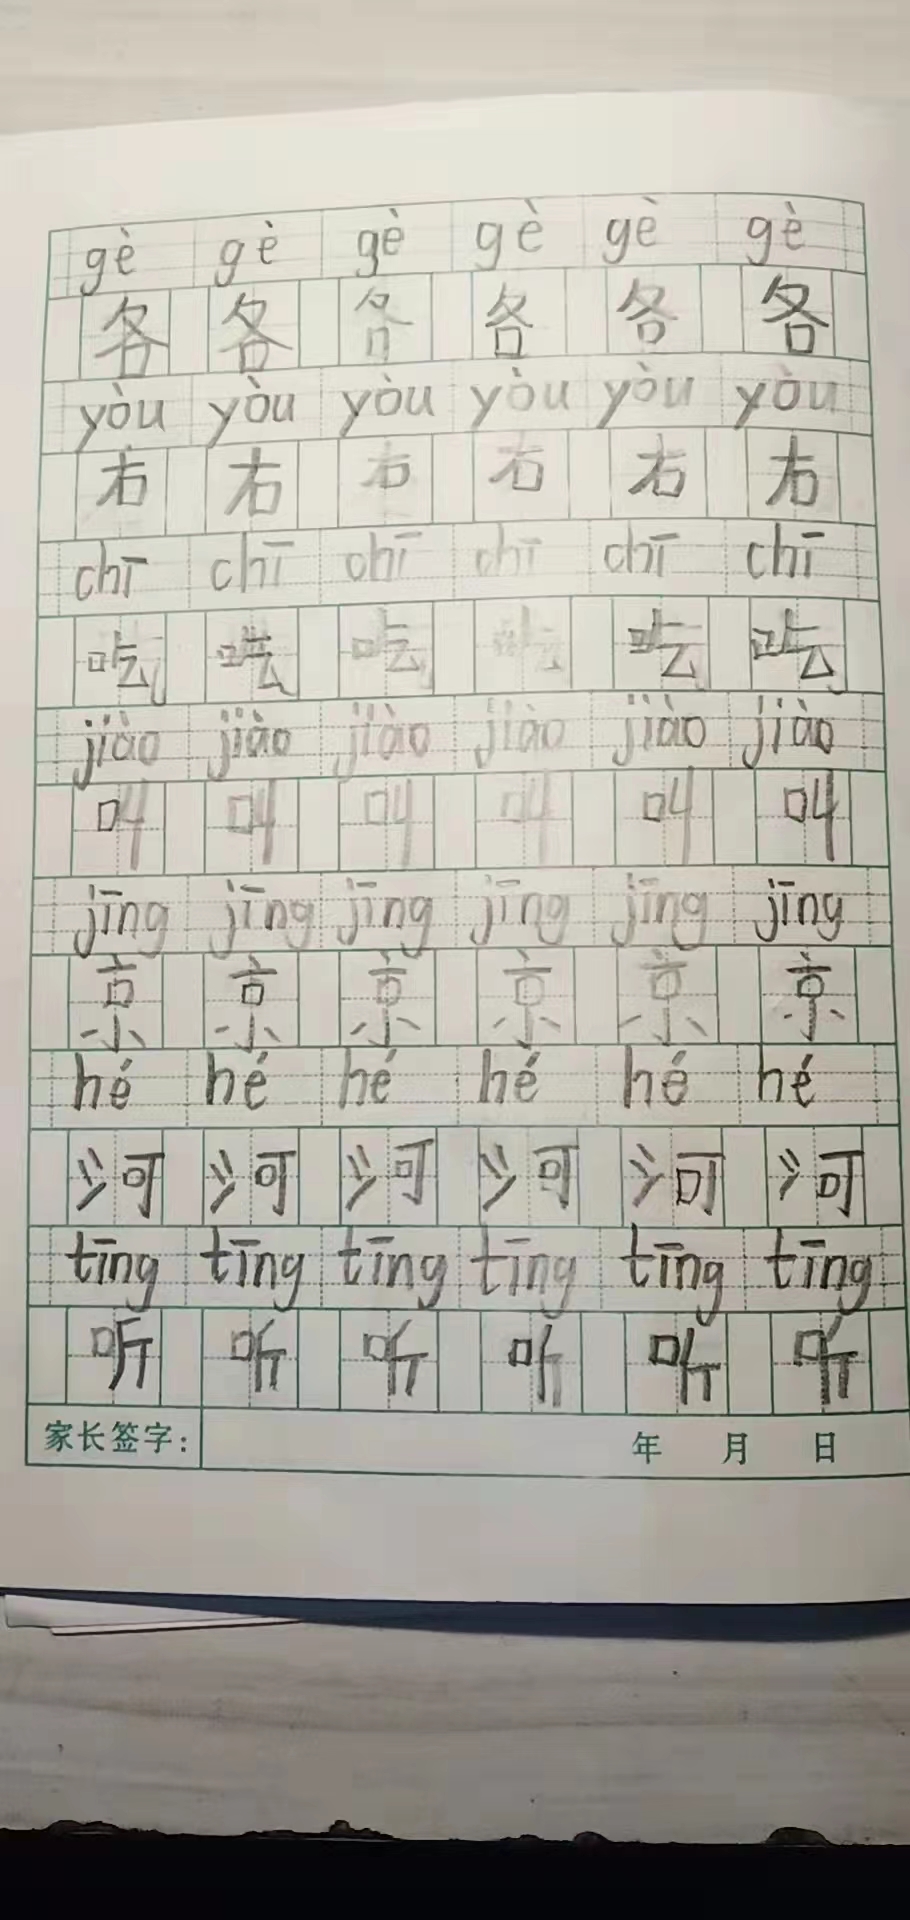 gè gè gè gè gè gè
各 各 各 各 各 各
yòu yòu yòu yòu yòu yòu
右 右 右 右 右 右
chī chī chī chī chī chī
吃 吃 吃 吃 吃 吃
jiào jiào jiào jiào jiào jiào
叫 叫 叫 叫 叫 叫
jīng jīng jīng jīng jīng jīng
京 京 京 京 京 京
hé hé hé hé hé hé
河 河 河 河 河 河
tīng tīng tīng tīng tīng tīng
听 听 听 听 听 听
家长签字： 年 月 日